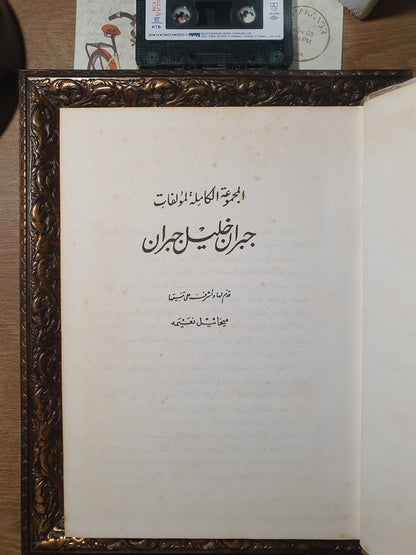 المجموعة الكاملة لمؤلفات
جبران خليل جبران
قدم لها وأشرف على تنسيقها
ميخائيل نعيمه